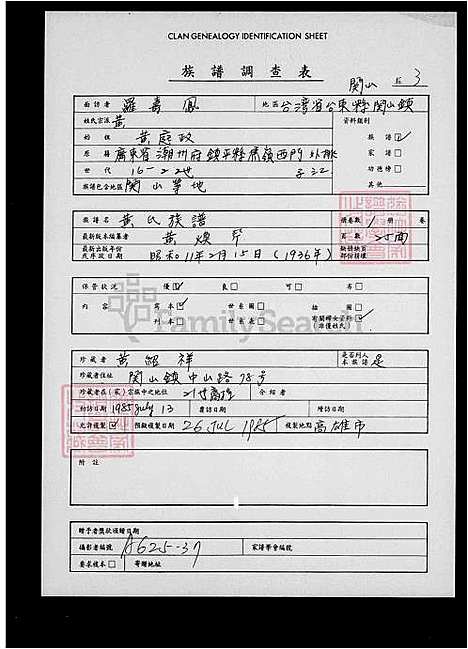 CLAN GENEALOGY IDENTIFICATION SHEET
族譜調查表
関山 3
面訪者 羅壽鳳 地區 台湾省台東縣関山鎮
姓氏宗派 黃 資料類別
始祖 黃庭政 族譜☑
原籍 廣東省潮州府鎮平縣 西門外 家譜□
世代 16-22世 功德榜□
族譜包含地區 関山等地 其他
族譜名 黃氏族譜 總卷數 1 卷
最新版本編纂者 黃煥 頁數 25面
最新出版年份及序跋日期 昭和11年2月15日(1936年) 缺損缺頁部份損壞
保管狀況 優☑ 良□ 可□ 劣□
內容 寫本☑ 世系圖□ 插圖□
刊本□ 世系表□ 有關婦女資料☑ (非僅姓氏)
FamilySearch
珍藏者 黃紹祥 是否列入本族譜 是
珍藏者住址 関山鎮中山路78号
珍藏者在(家)宗族中之地位 21世裔孫 介紹者
初訪日期 1985 July 13 覆訪日期 增訪日期
允許複製☑ 預擬複製日期 26 Jul 1985 複製地點 高雄市
附註
贈予者獎狀繕贈日期
攝影者編號 A625-37 家譜學會編號
要求複本□ 寄贈地址